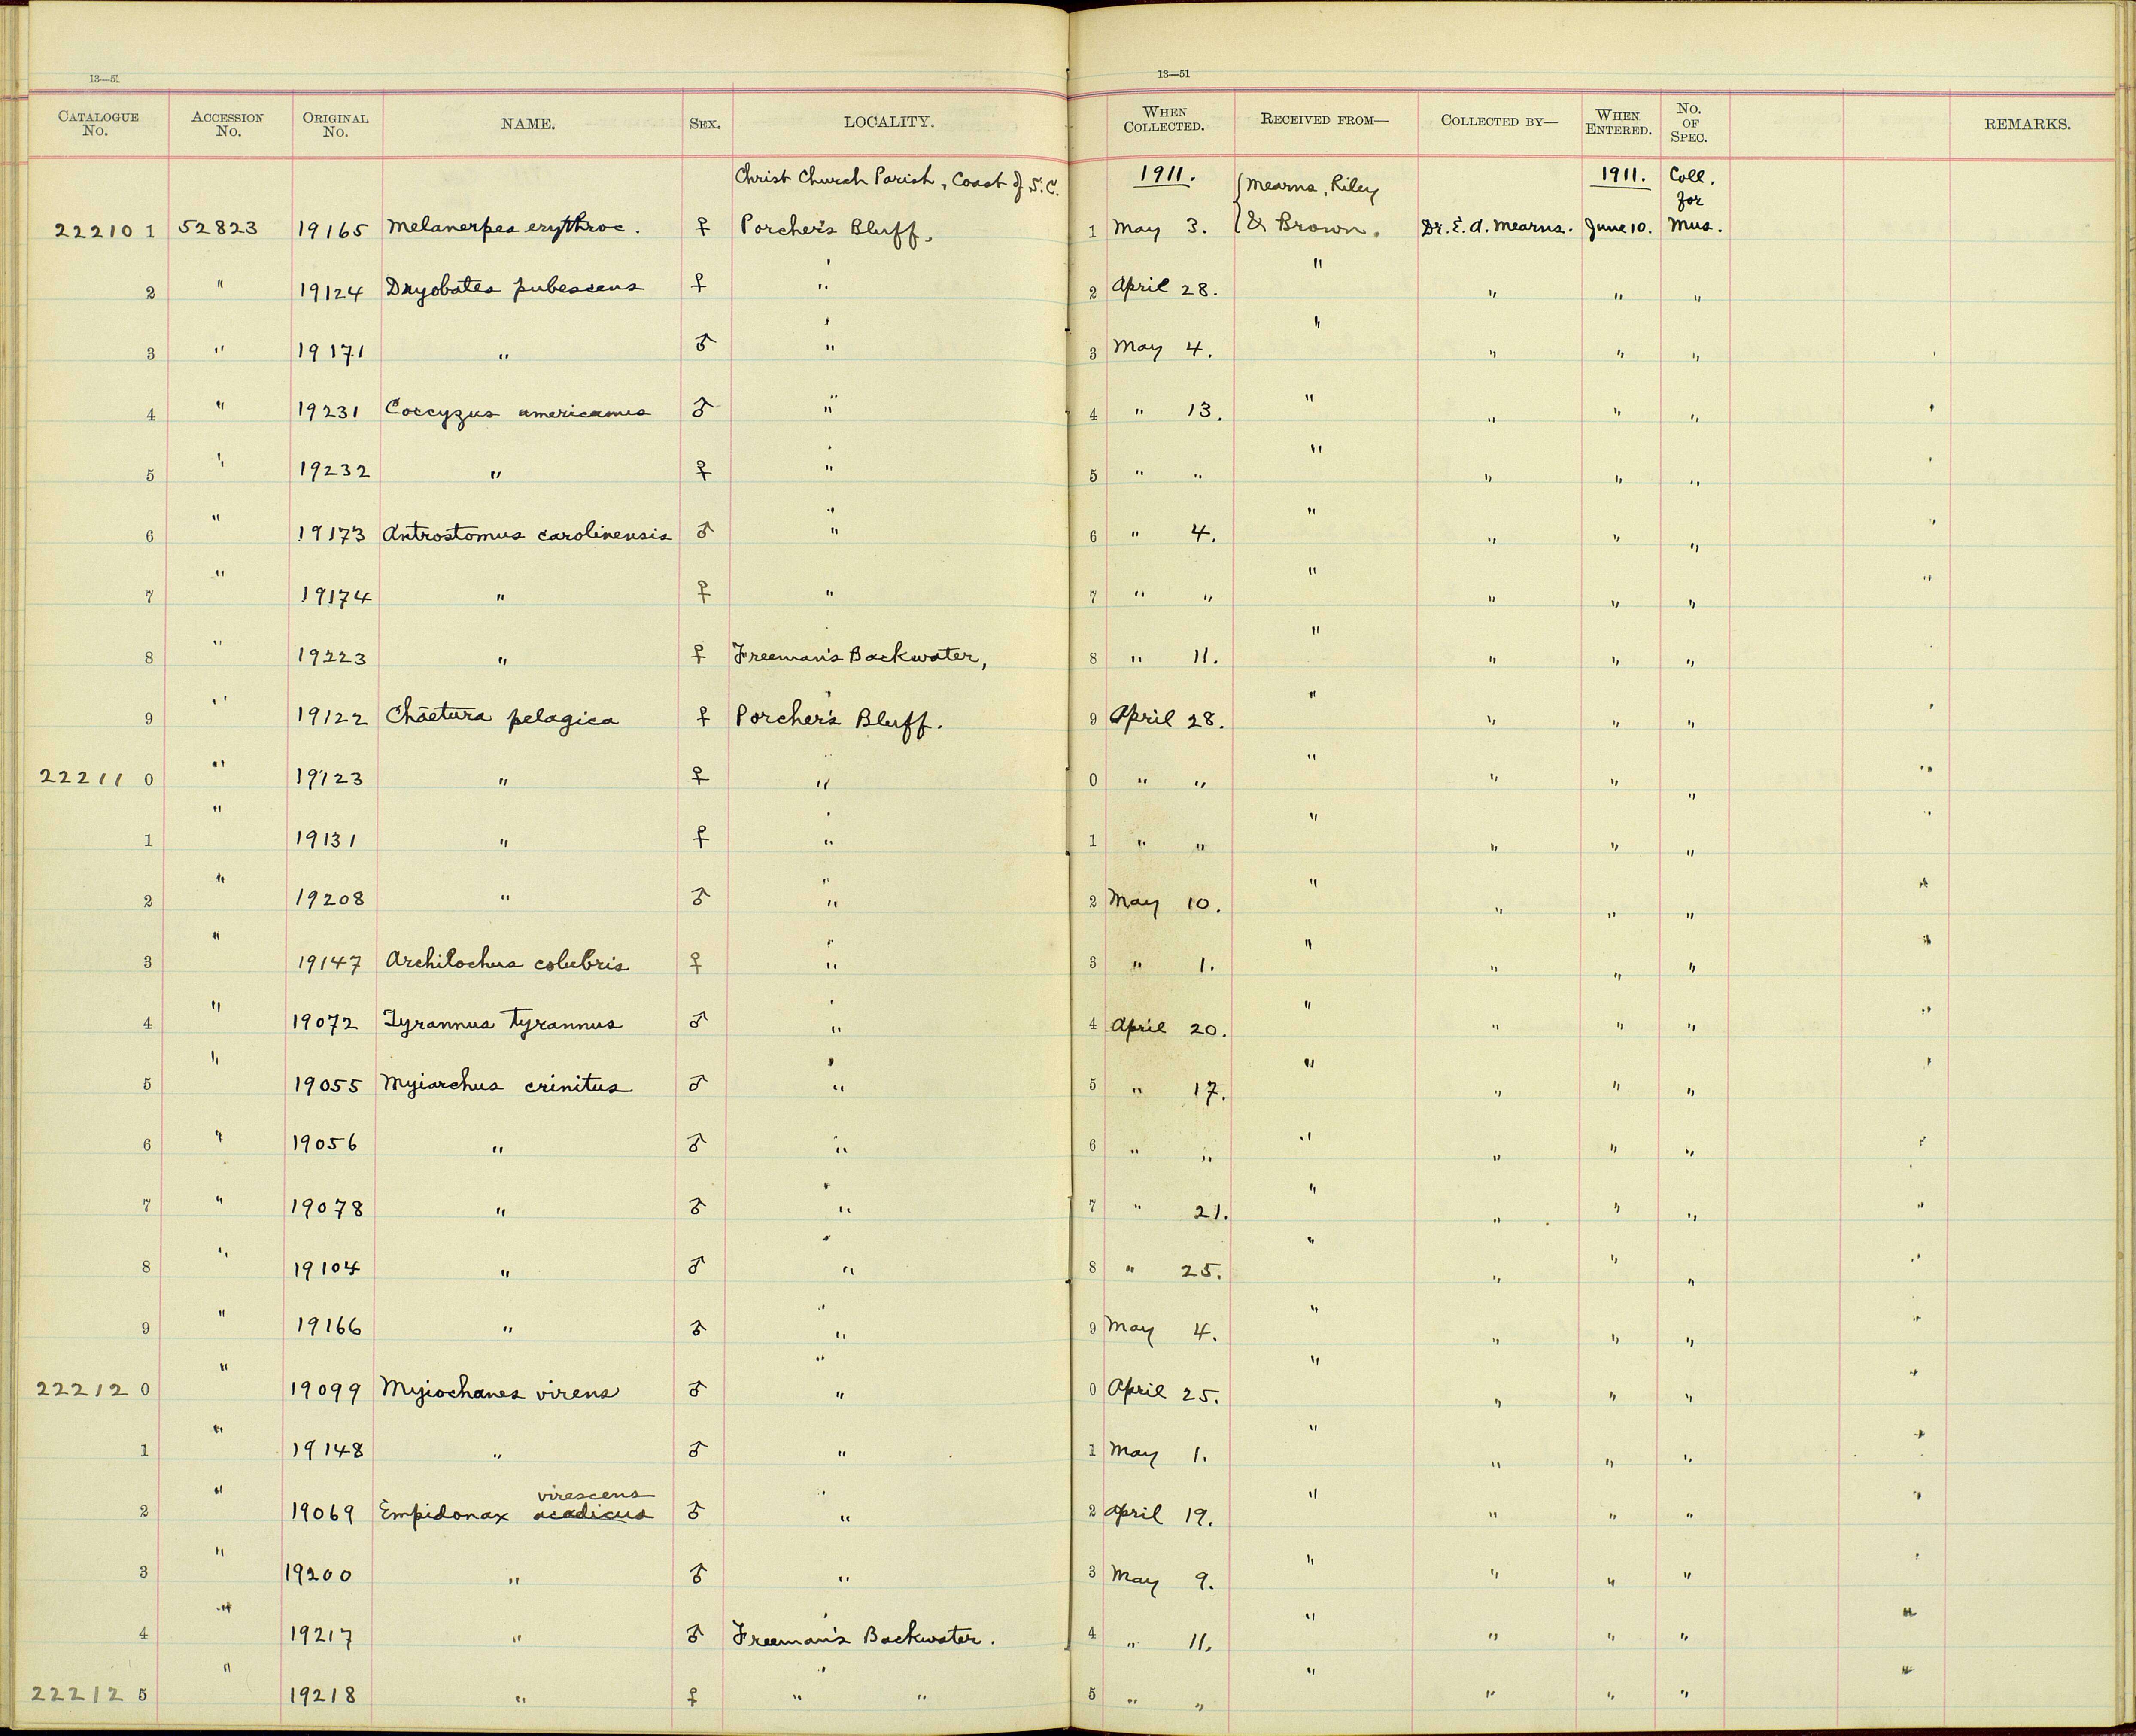 13—51
13—51
CATALOGUE No. ACCESSION No. ORIGINAL No. NAME. SEX. LOCALITY. WHEN COLLECTED. RECEIVED FROM— COLLECTED BY— WHEN ENTERED. No. OF SPEC. REMARKS.
Christ Church Parish, Coast of S.C. 1911. Mearns, Riley 1911. Coll. for
222101 52823 19165 Melanerpes erythroc. ♀ Porcher's Bluff. 1 May 3. & Brown. Dr. E. A. Mearns. June 10. Mus.
2 " 19124 Dryobates pubescens ♀ " 2 April 28. " " " "
3 " 19171 " ♂ " 3 May 4. " " " "
4 " 19231 Coccyzus americanus ♂ " 4 " 13. " " " "
5 " 19232 " ♀ " 5 " " " " " "
6 " 19173 Antrostomus carolinensis ♂ " 6 " 4. " " " "
7 " 19174 " ♀ " 7 " " " " " "
8 " 19223 " ♀ Freeman's Backwater, 8 " 11. " " " "
9 " 19122 Chaetura pelagica ♀ Porcher's Bluff. 9 April 28. " " " "
222110 " 19123 " ♀ " 0 " " " " " "
1 " 19131 " ♀ " 1 " " " " " "
2 " 19208 " ♂ " 2 May 10. " " " "
3 " 19147 Archilochus colubris ♀ " 3 " 1. " " " "
4 " 19072 Tyrannus tyrannus ♂ " 4 April 20. " " " "
5 " 19055 Myiarchus crinitus ♂ " 5 " 17. " " " "
6 " 19056 " ♂ " 6 " " " " " "
7 " 19078 " ♂ " 7 " 21. " " " "
8 " 19104 " ♂ " 8 " 25. " " " "
9 " 19166 " ♂ " 9 May 4. " " " "
222120 " 19099 Myiochanes virens ♂ " 0 April 25. " " " "
1 " 19148 " ♂ " 1 May 1. " " " "
virescens
2 " 19069 Empidonax acadicus ♂ " 2 April 19. " " " "
3 " 19200 " ♂ " 3 May 9. " " " "
4 " 19217 " ♂ Freeman's Backwater. 4 " 11. " " " "
222125 " 19218 " ♀ " " 5 " " " " " "